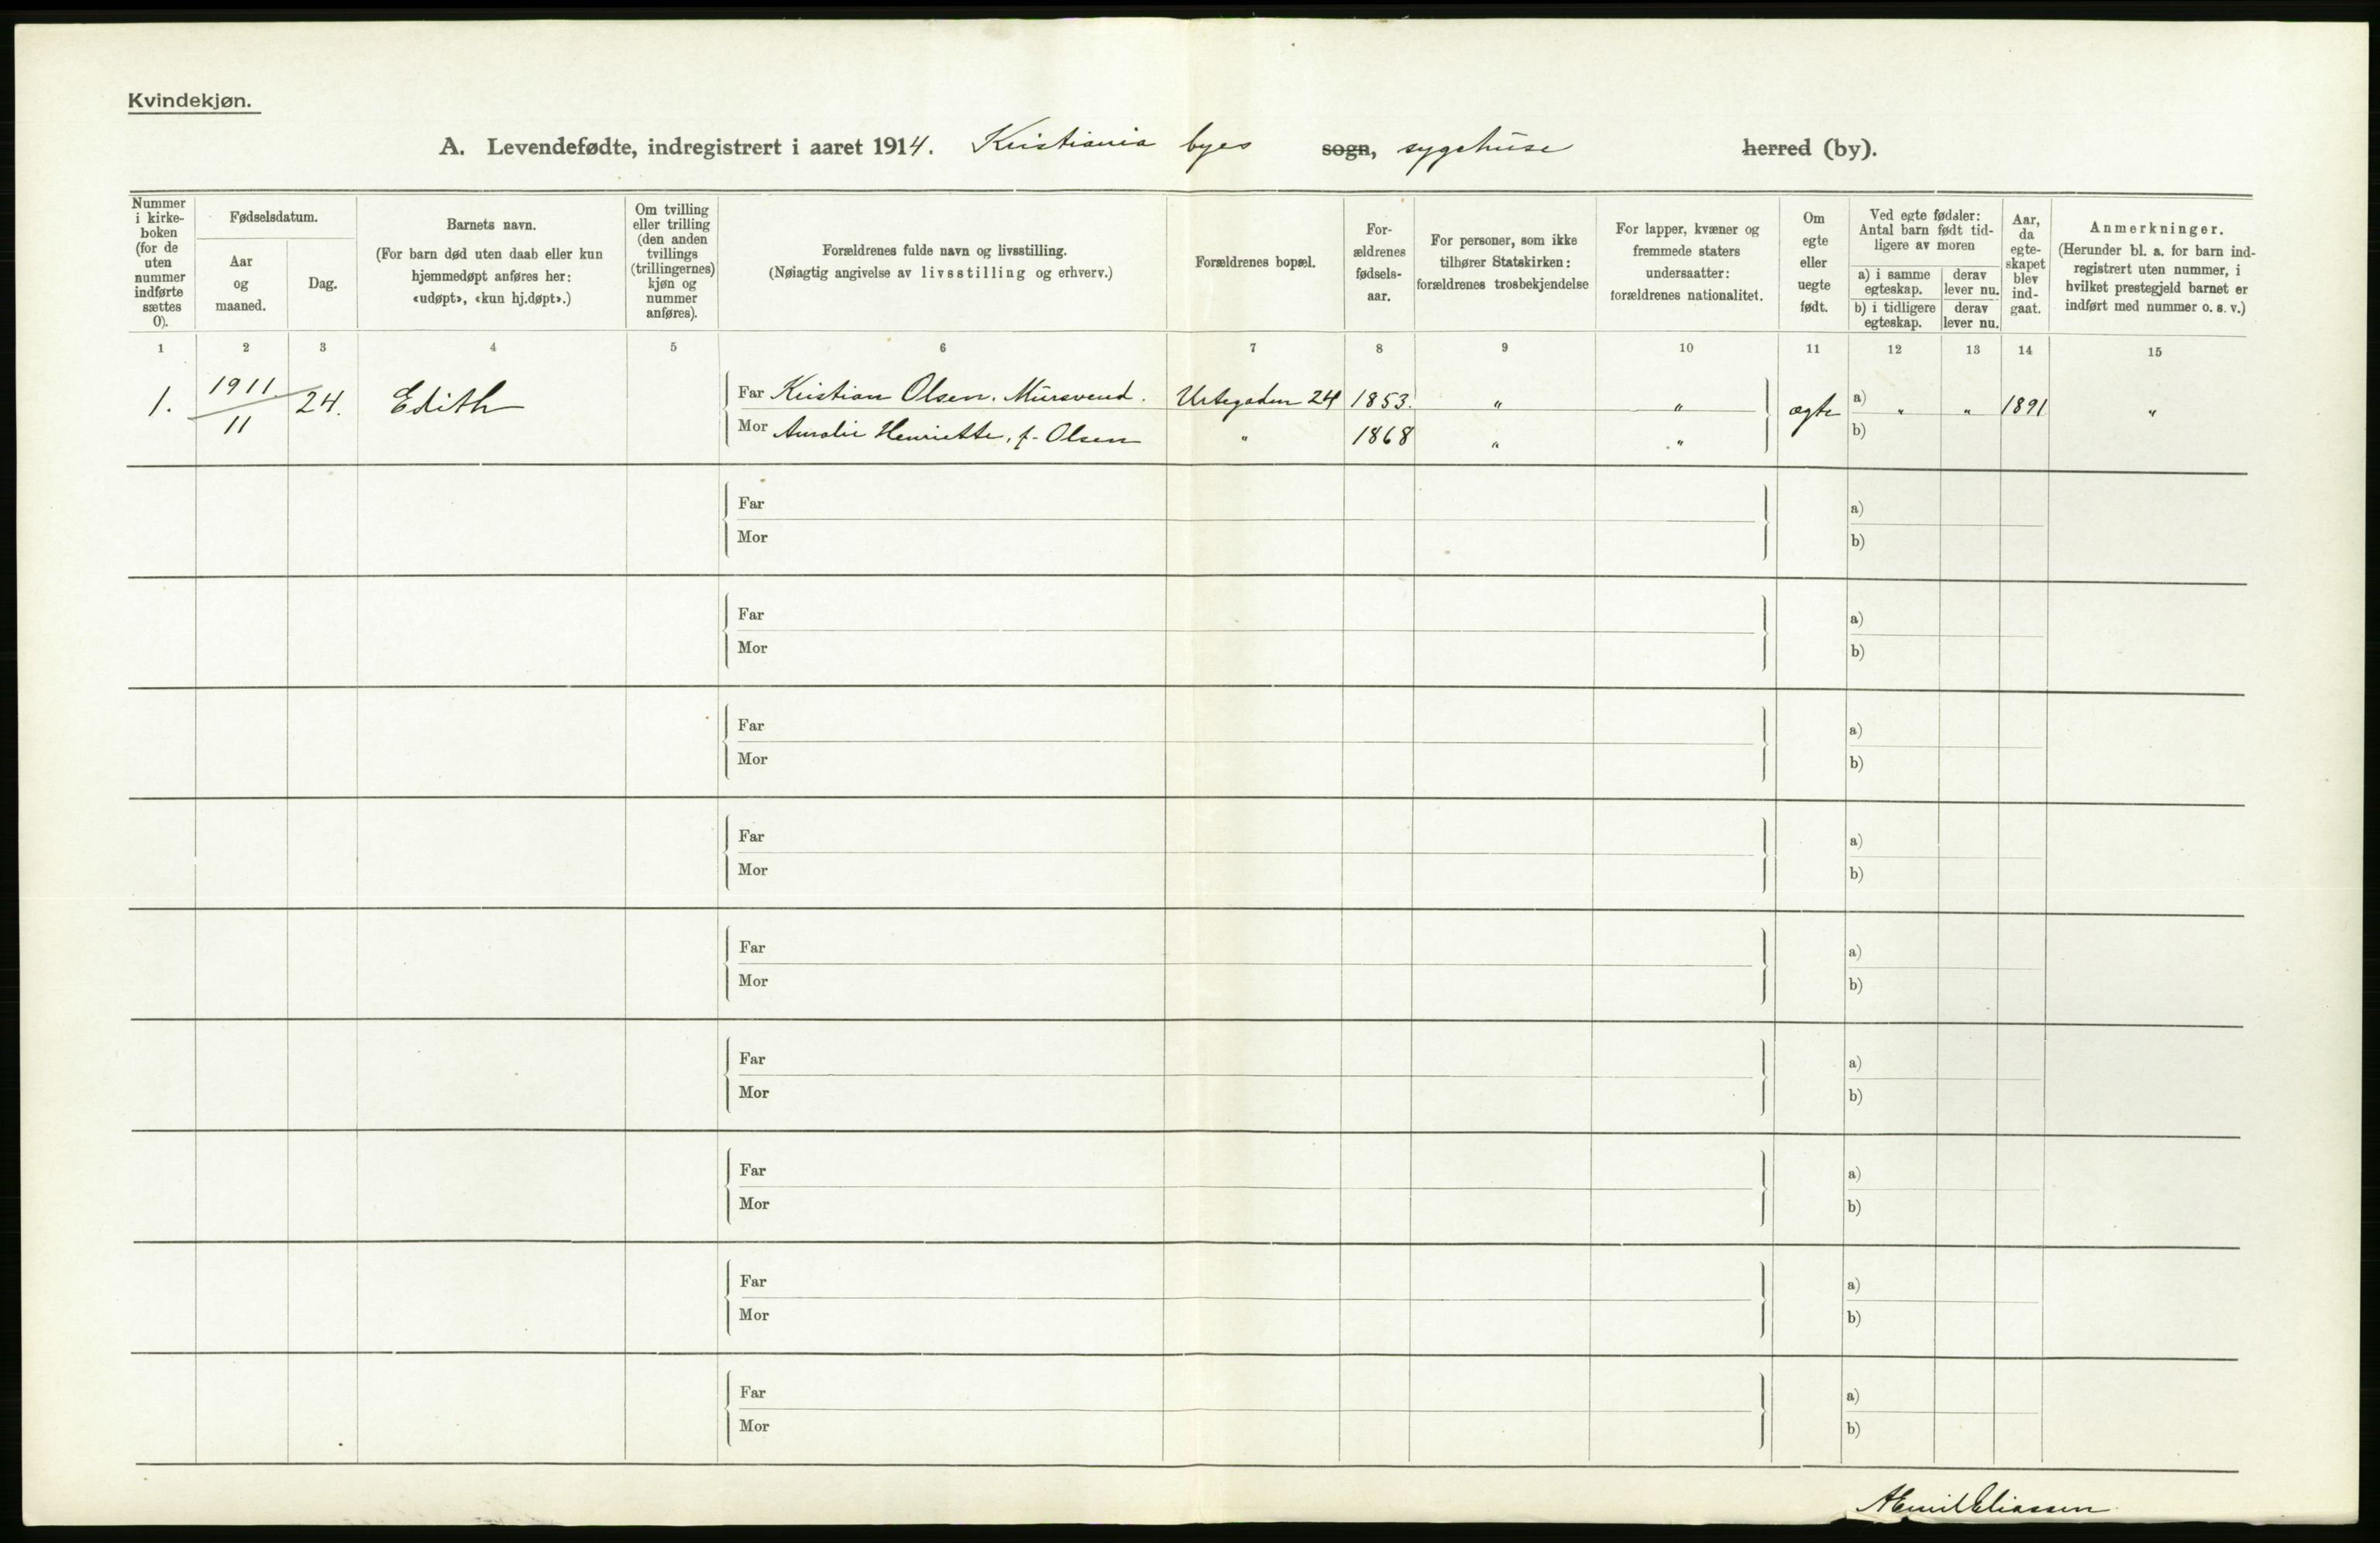 Kvindekjøn.
A. Levendefødte, indregistrert i aaret 1914. Kristiania byes sogn, sygehuse herred (by).
Nummer i kirkeboken (for de uten nummer indførte sættes 0).
Fødselsdatum.
Aar og maaned.
Dag.
Barnets navn.
(For barn død uten daab eller kun hjemmedøpt anføres her: «udøpt», «kun hj.døpt».)
Om tvilling eller trilling (den anden tvillings (trillingernes) kjøn og nummer anføres).
Forældrenes fulde navn og livsstilling.
(Nøiagtig angivelse av livsstilling og erhverv.)
Forældrenes bopæl.
Forældrenes fødselsaar.
For personer, som ikke tilhører Statskirken: forældrenes trosbekjendelse
For lapper, kvæner og fremmede staters undersaatter: forældrenes nationalitet.
Om egte eller uegte født.
Ved egte fødsler: Antal barn født tidligere av moren
a) i samme egteskap.
derav lever nu.
b) i tidligere egteskap.
derav lever nu.
Aar, da egteskapet blev indgaat.
Anmerkninger.
(Herunder bl. a. for barn indregistrert uten nummer, i hvilket prestegjeld barnet er indført med nummer o. s. v.)
1 2 3 4 5 6 7 8 9 10 11 12 13 14 15
1. 1911 11 24. Edith Far Kristian Olsen. Mursvend. Urtegaden 24 1853. " " ægte a) " " 1891 "
Mor Amalie Henriette, f. Olsen " 1868 " " b)
Far a)
Mor b)
Far a)
Mor b)
Far a)
Mor b)
Far a)
Mor b)
Far a)
Mor b)
Far a)
Mor b)
Far a)
Mor b)
Far a)
Mor b)
Far a)
Mor b)
Eliassen